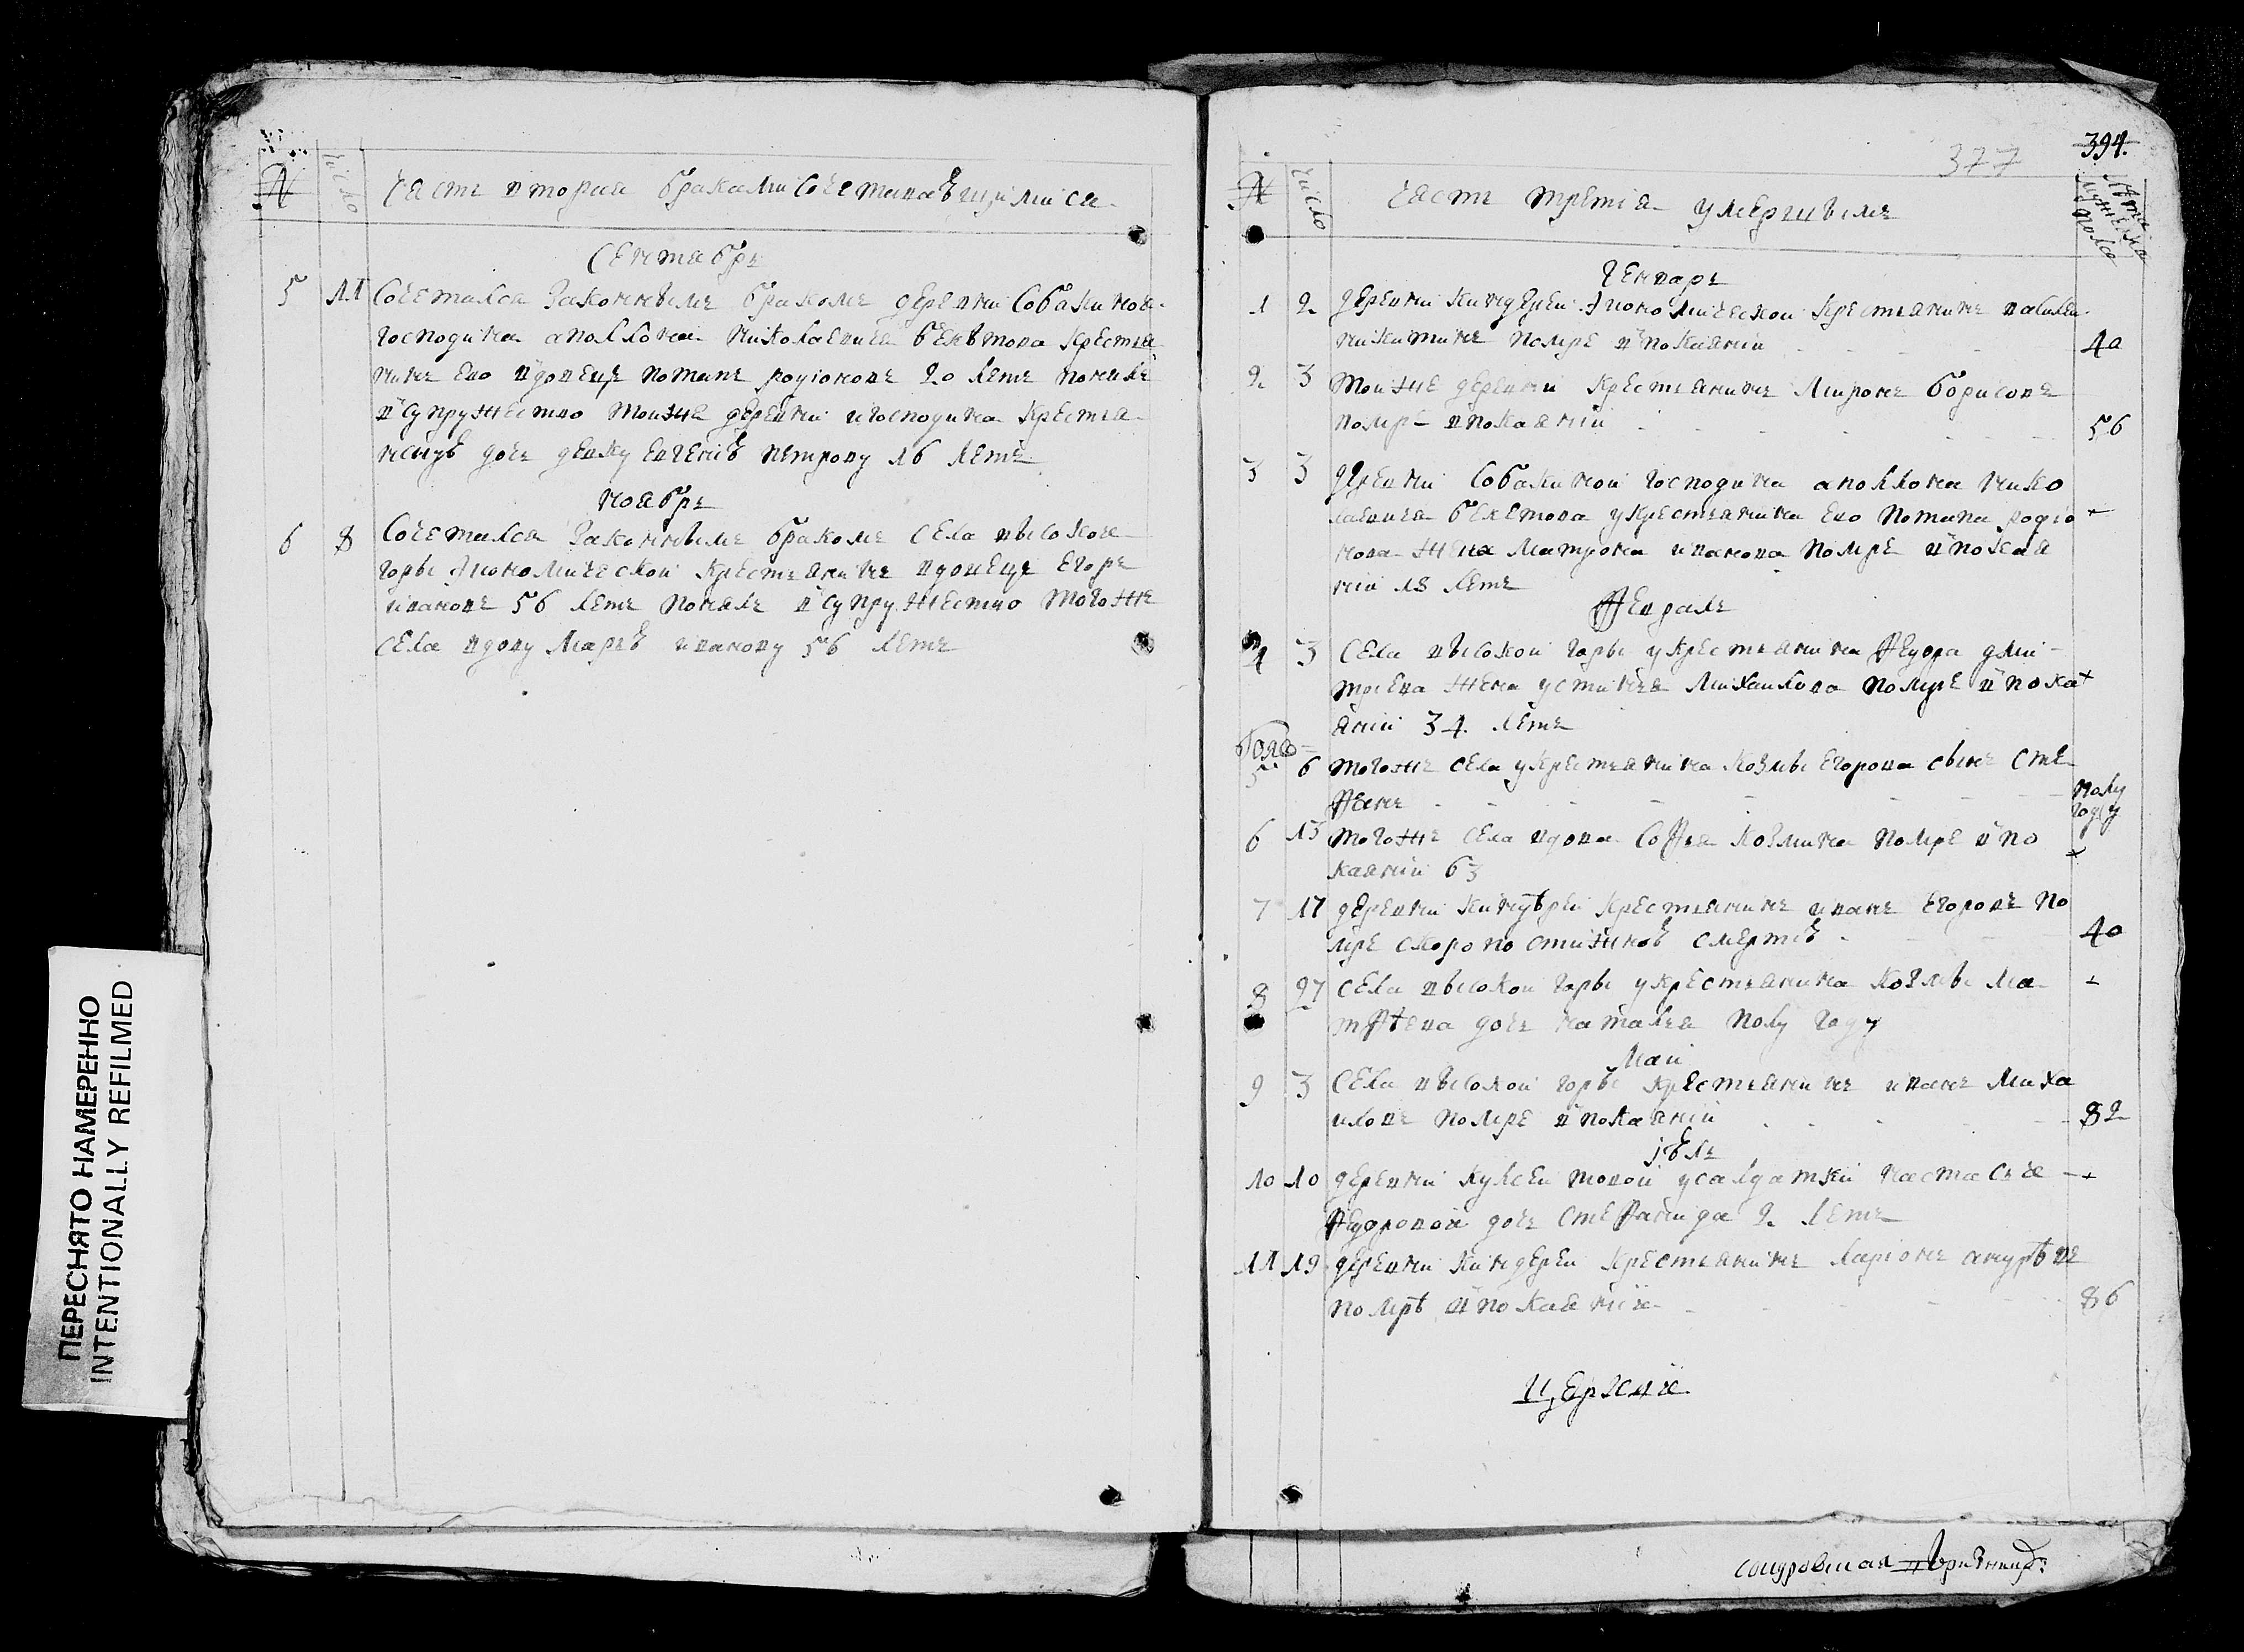 № число
Часть вторая бракамисочетавъшимися
Сентябрь
5 11 Сочетался законнымъ бракомъ деревни Собакиной
господина аполлона николаевича бекѣтова крестья
нинъ ево вдовецъ потапъ родіоновъ 20 летъ понялъ
в супружество тоиже деревни игосподина крестья
ницу дочь девку евгенїю петрову 16 летъ
ноябрь
6 8 Сочетался законнымъ бракомъ села высокоя
горы экономической крестьянинъ вдовецъ егоръ
ивановъ 56 летъ понялъ в супружество тогоже
села вдову марью иванову 56 летъ
377 394.
№ число Часть третія умершымъ Лѣта мужеска пола
Генварь
1 2 деревни киндерей экономической крестьянинъ василеи
никитинъ помре в покаянїи 40
2 3 тоиже деревни крестьянинъ миронъ борисовъ
помре впокаянїи 56
3 3 деревни Собакиной господина аполлона нико
лаевича бекетова укрестьянина ево потапа родіо
нова жена матрона иванова помре в покая
нїи 18 летъ
Февраль
4 3 села высокой горы укрестьянина Федора дми
триева жена устинья михаилова помре в пока
янїи 34. летъ
5 6 тогоже села укрестьянина козмы егорова сынъ сте
Фанъ полу году
6 15 тогоже села вдова Софья козмина помре в по
каянїи 63
7 17 деревни киндѣреи крестьянинъ иванъ егоровъ по
мре скоро постижною смертїю 40
8 27 села высокой горы укрестьянина козмы ма
тфѣева дочь наталья полу году
Маи
9 3 села высокой горы крестьянинъ иванъ миха
иловъ помре в покаянїи 82
юль
10 10 деревни куюевы усалдатки настасьи
Федоровой дочь стеФанида 2 летъ
11 19 деревни киндереи крестьянинъ ларіонъ андрѣевъ
помрѣ в покаянїи 86
церкви
ПЕРЕСНЯТО НАМЕРЕННО
INTENTIONALLY REFILMED